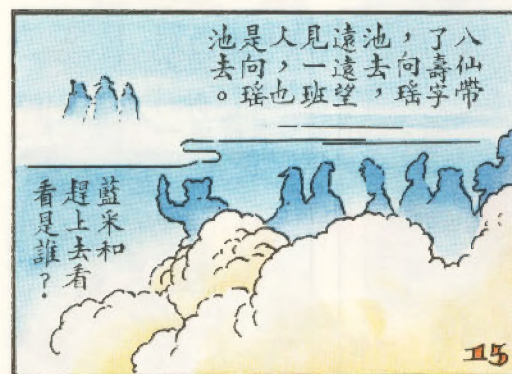 八仙帶
了壽字
，向瑶
池去，
遠遠望
見一班
人，也
是向瑶
池去。
藍采和
趕上去看
看是誰？
15